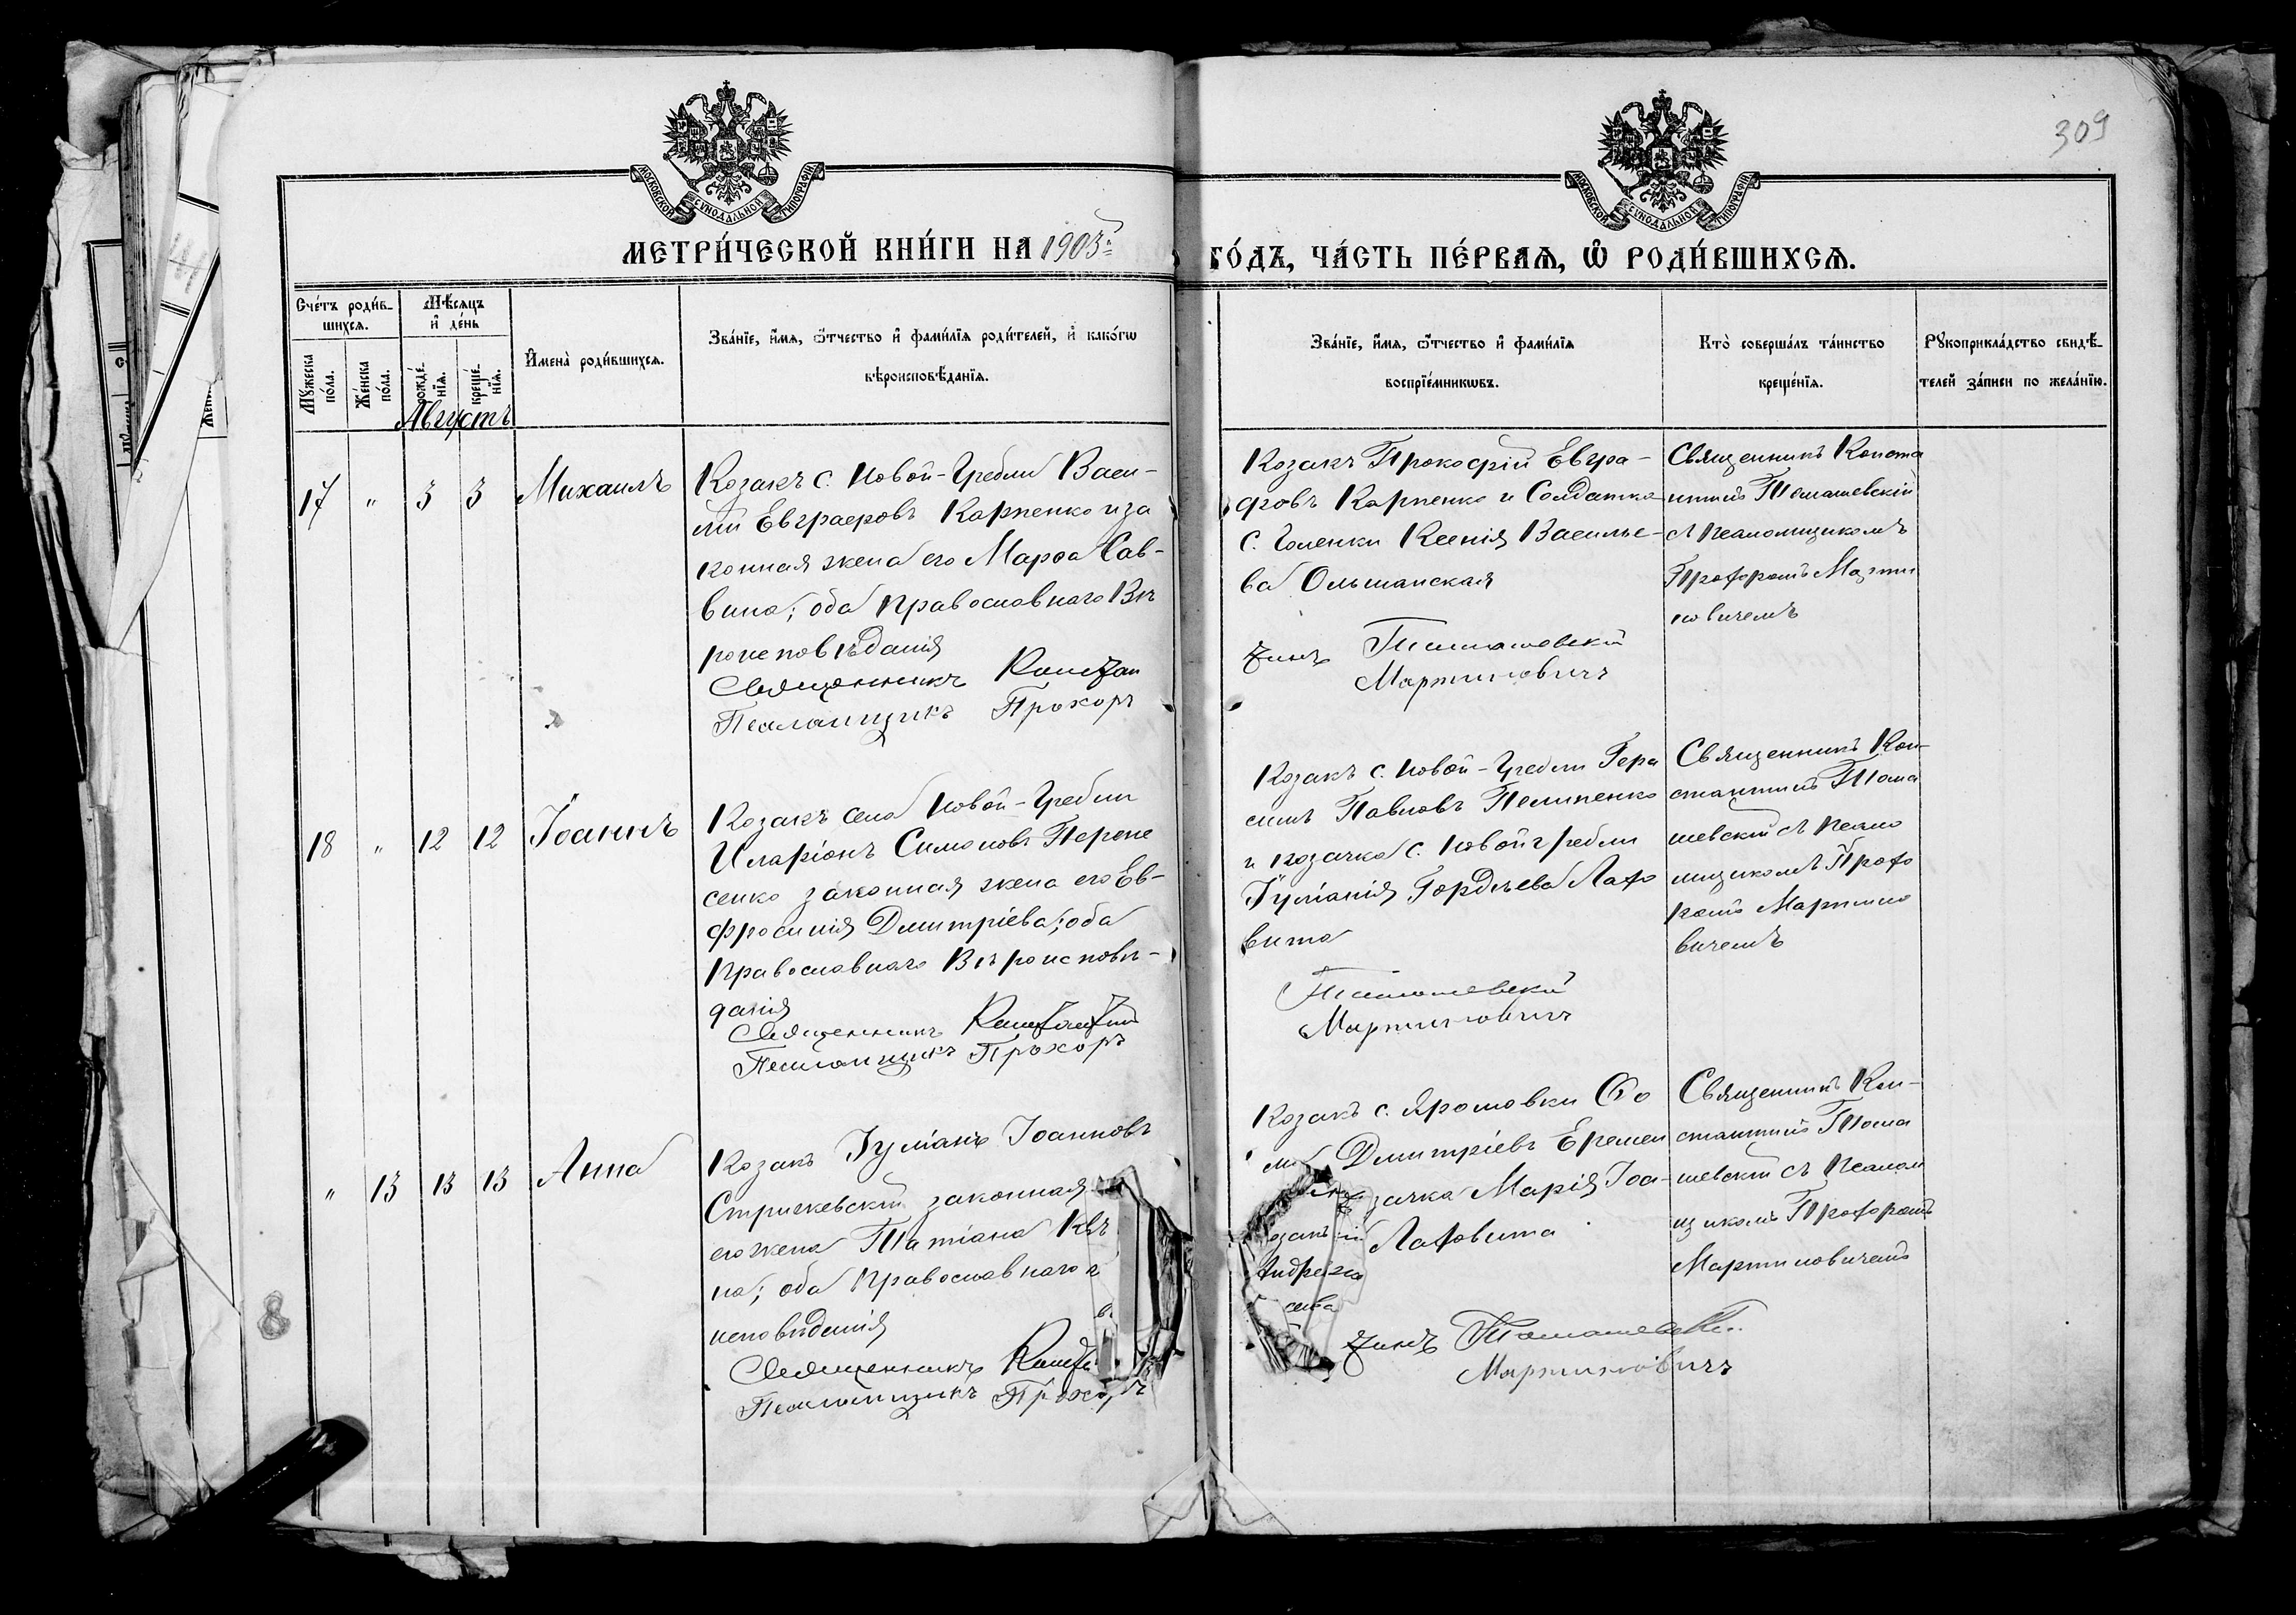 309
МОСКОВСКОЙ СѴНОДАЛЬНОЙ ТИПОГРАФІИ
МОСКОВСКОЙ СѴНОДАЛЬНОЙ ТИПОГРАФІИ
МЕТРИ́ЧЕСКОЙ КНИ́ГИ НА 1903 ГО́ДЪ, ЧА́СТЬ ПЕ́РВАѦ, Ѡ҆ РОДИ́ВШИХСѦ.
Сче́тъ роди́в-
шихсѧ.
Мѣ́сѧцъ
и҆ де́нь
Мꙋ́жеска по́ла.
Же́нска по́ла.
рожде́-
нїѧ.
креще́-
нїѧ.
И҆мена̀ роди́вшихсѧ.
Зва́нїе, и҆́мѧ, ѻ҆́тчество и҆ фами́лїѧ роди́телей, и҆ како́гѡ
вѣроисповѣ́данїѧ.
Зва́нїе, и҆́мѧ, ѻ҆́тчество и҆ фами́лїѧ
воспрїе́мникѡвъ.
Кто̀ соверша́лъ та́инство
креще́нїѧ.
Рꙋкоприкла́дство свидѣ́-
телей за́писи по жела́нїю.
Августъ
17 " 3 3 Михаилъ
Козакъ с. Новой-Гребли Васи-
лій Евграфовъ Карпенко и за
конная жена его Марѳа Сав-
вина; оба Православнаго Вѣ
роисповѣданія
Священникъ Констан
Псаломщикъ Прохоръ
Козакъ Прокофій Евгра-
фовъ Карпенко и Солдатка
с. Голенки Ксенія Василье-
ва Ольшанская
тинъ Томашевскій
Мартиновичъ
Священникъ Конста
нтинъ Томашевскій
съ Псаломщикомъ
Прохоромъ Марти
новичемъ
18 " 12 12 Іоаннъ
Козакъ села Новой-Гребли
Иларіонъ Симоновъ
сенко законная жена его Ев-
фросинія Димитріева; оба
Православнаго Вѣроисповѣ-
данія
Священникъ Константинъ
Псаломщикъ Прохоръ
Козакъ с. Новой-Гребли Гера
симъ Павловъ Пилипенко
и козачка с. Новой гребли
Іуліанія Гордѣева Лахо
вита
Томашевскій
Мартиновичъ
Священникъ Кон-
стантинъ Тома
шевскій съ Псало
мщикомъ Прохо
ромъ Мартино
вичемъ
" 13 13 13 Анна
Козакъ Іуліанъ Іоанновъ
Стрижевскій законная
его жена Татіана
на; оба Православнаго
исповѣданія
Священникъ
Псаломщикъ Прохоръ
Козакъ с. Ярошовки Ѳо
ма Димитріевъ Еремен
зачка Марія Іоа-
Лаховита
тинъ Томашевскій
Мартиновичъ
Священникъ Кон-
стантинъ Тома
шевскій съ Псалом
щикомъ Прохоромъ
Мартиновичемъ